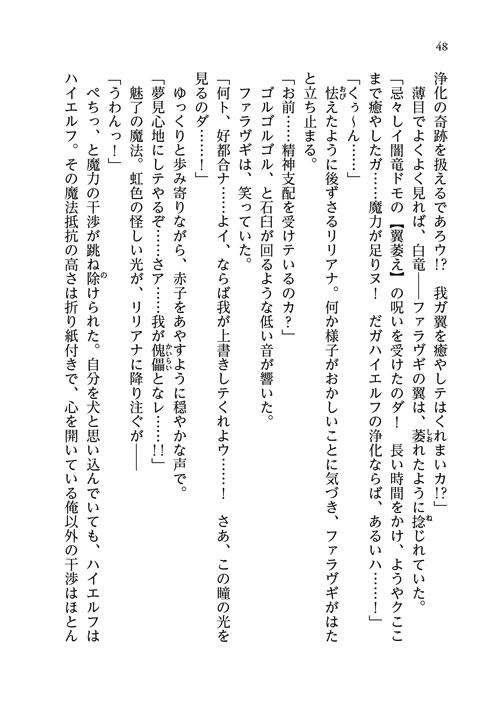 48
浄化の奇跡を扱えるであろウ!?　我ガ翼を癒やしテはくれまいカ!?」
　薄目でよくよく見れば、白竜――ファラヴギの翼は、萎れたように捻じれていた。
「忌々しイ闇竜ドモの【翼萎え】の呪いを受けたのダ！　長い時間をかけ、ようやクここ
まで癒やしたガ……魔力が足りヌ！　だガハイエルフの浄化ならば、あるいハ……！」
「くぅ～ん……」
　怯えたように後ずさるリリアナ。何か様子がおかしいことに気づき、ファラヴギがはた
と立ち止まる。
「お前……精神支配を受けテいるのカ？」
　ゴルゴルゴル、と石臼が回るような低い音が響いた。
　ファラヴギは、笑っていた。
「何ト、好都合ナ……よイ、ならば我が上書きしテくれよウ……！　さあ、この瞳の光を
見るのダ……！」
　ゆっくりと歩み寄りながら、赤子をあやすように穏やかな声で。
「夢見心地にしテやるぞ……さア……我が傀儡となレ……!!」
　魅了の魔法。虹色の怪しい光が、リリアナに降り注ぐが――
「うわんっ！」
　ぺちっ、と魔力の干渉が跳ね除けられた。自分を犬と思い込んでいても、ハイエルフは
ハイエルフ。その魔法抵抗の高さは折り紙付きで、心を開いている俺以外の干渉はほとん